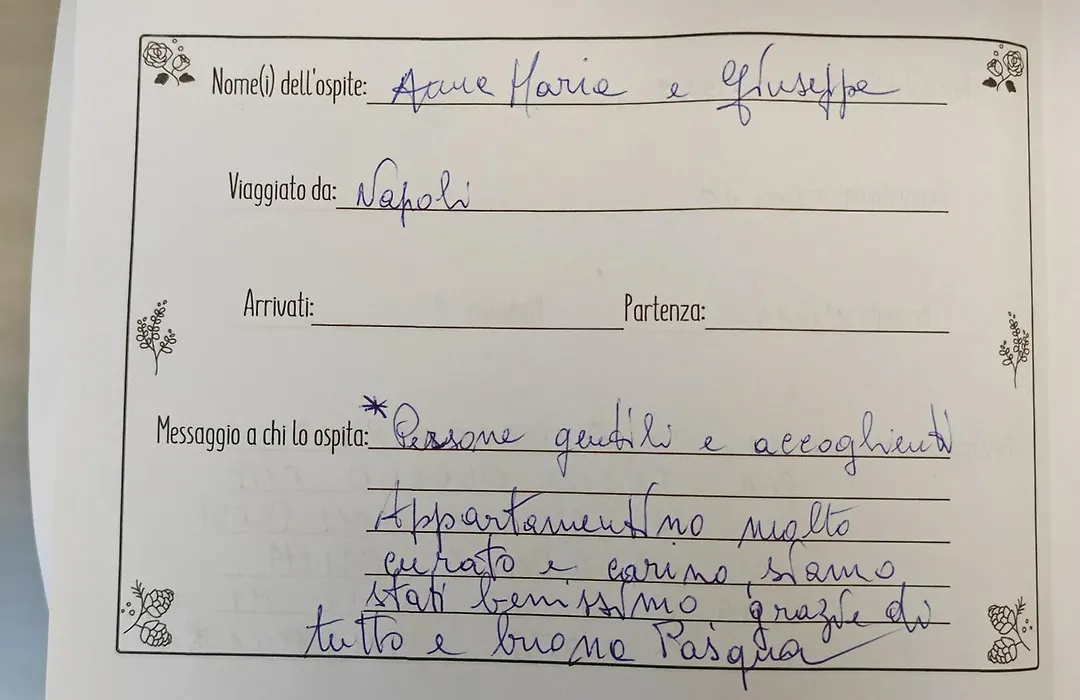 Nome(i) dell'ospite: Anna Maria e Giuseppe
Viaggiato da: Napoli
Arrivati: Partenza:
Messaggio a chi lo ospita: * Persone gentili e accoglienti
Appartamentino molto
curato e carino, siamo
stati benissimo grazie di
tutto e buona Pasqua